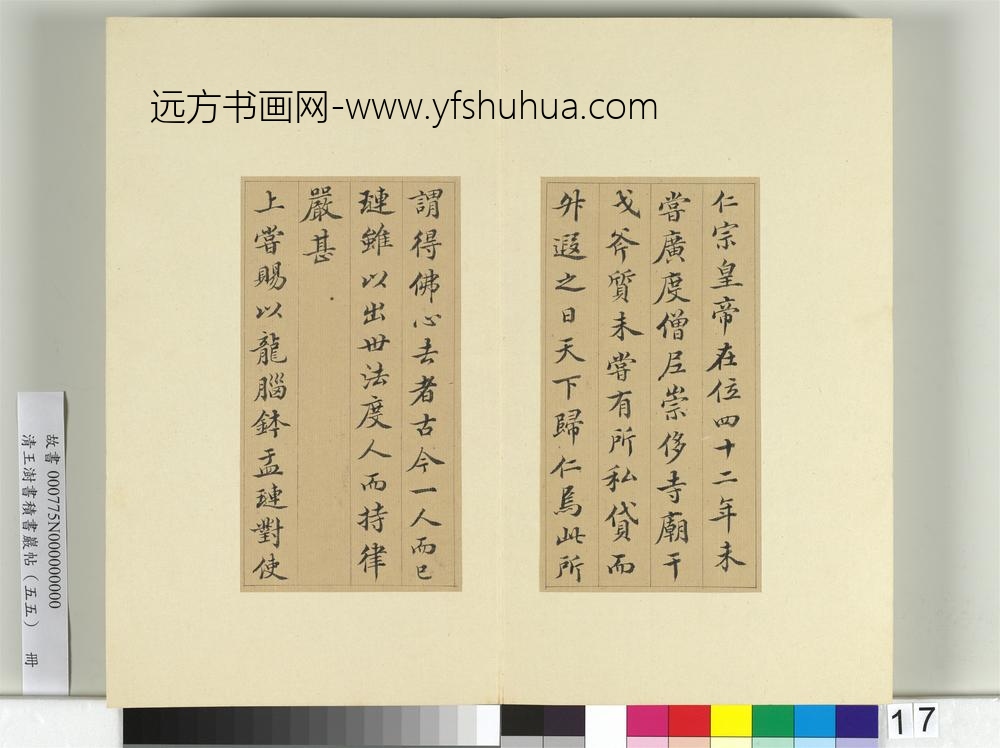 远方书画网-www.yfshuhua.com
仁宗皇帝在位四十二年未
嘗廣度僧尼崇侈寺廟干
戈斧質未嘗有所私貸而
升遐之日天下歸仁焉此所
謂得佛心法者古今一人而已
璉雖以出世法度人而持律
嚴甚
上嘗賜以龍腦鉢盂璉對使
故書 000775N000000000
清王澍書積書巖帖（五五） 冊
17